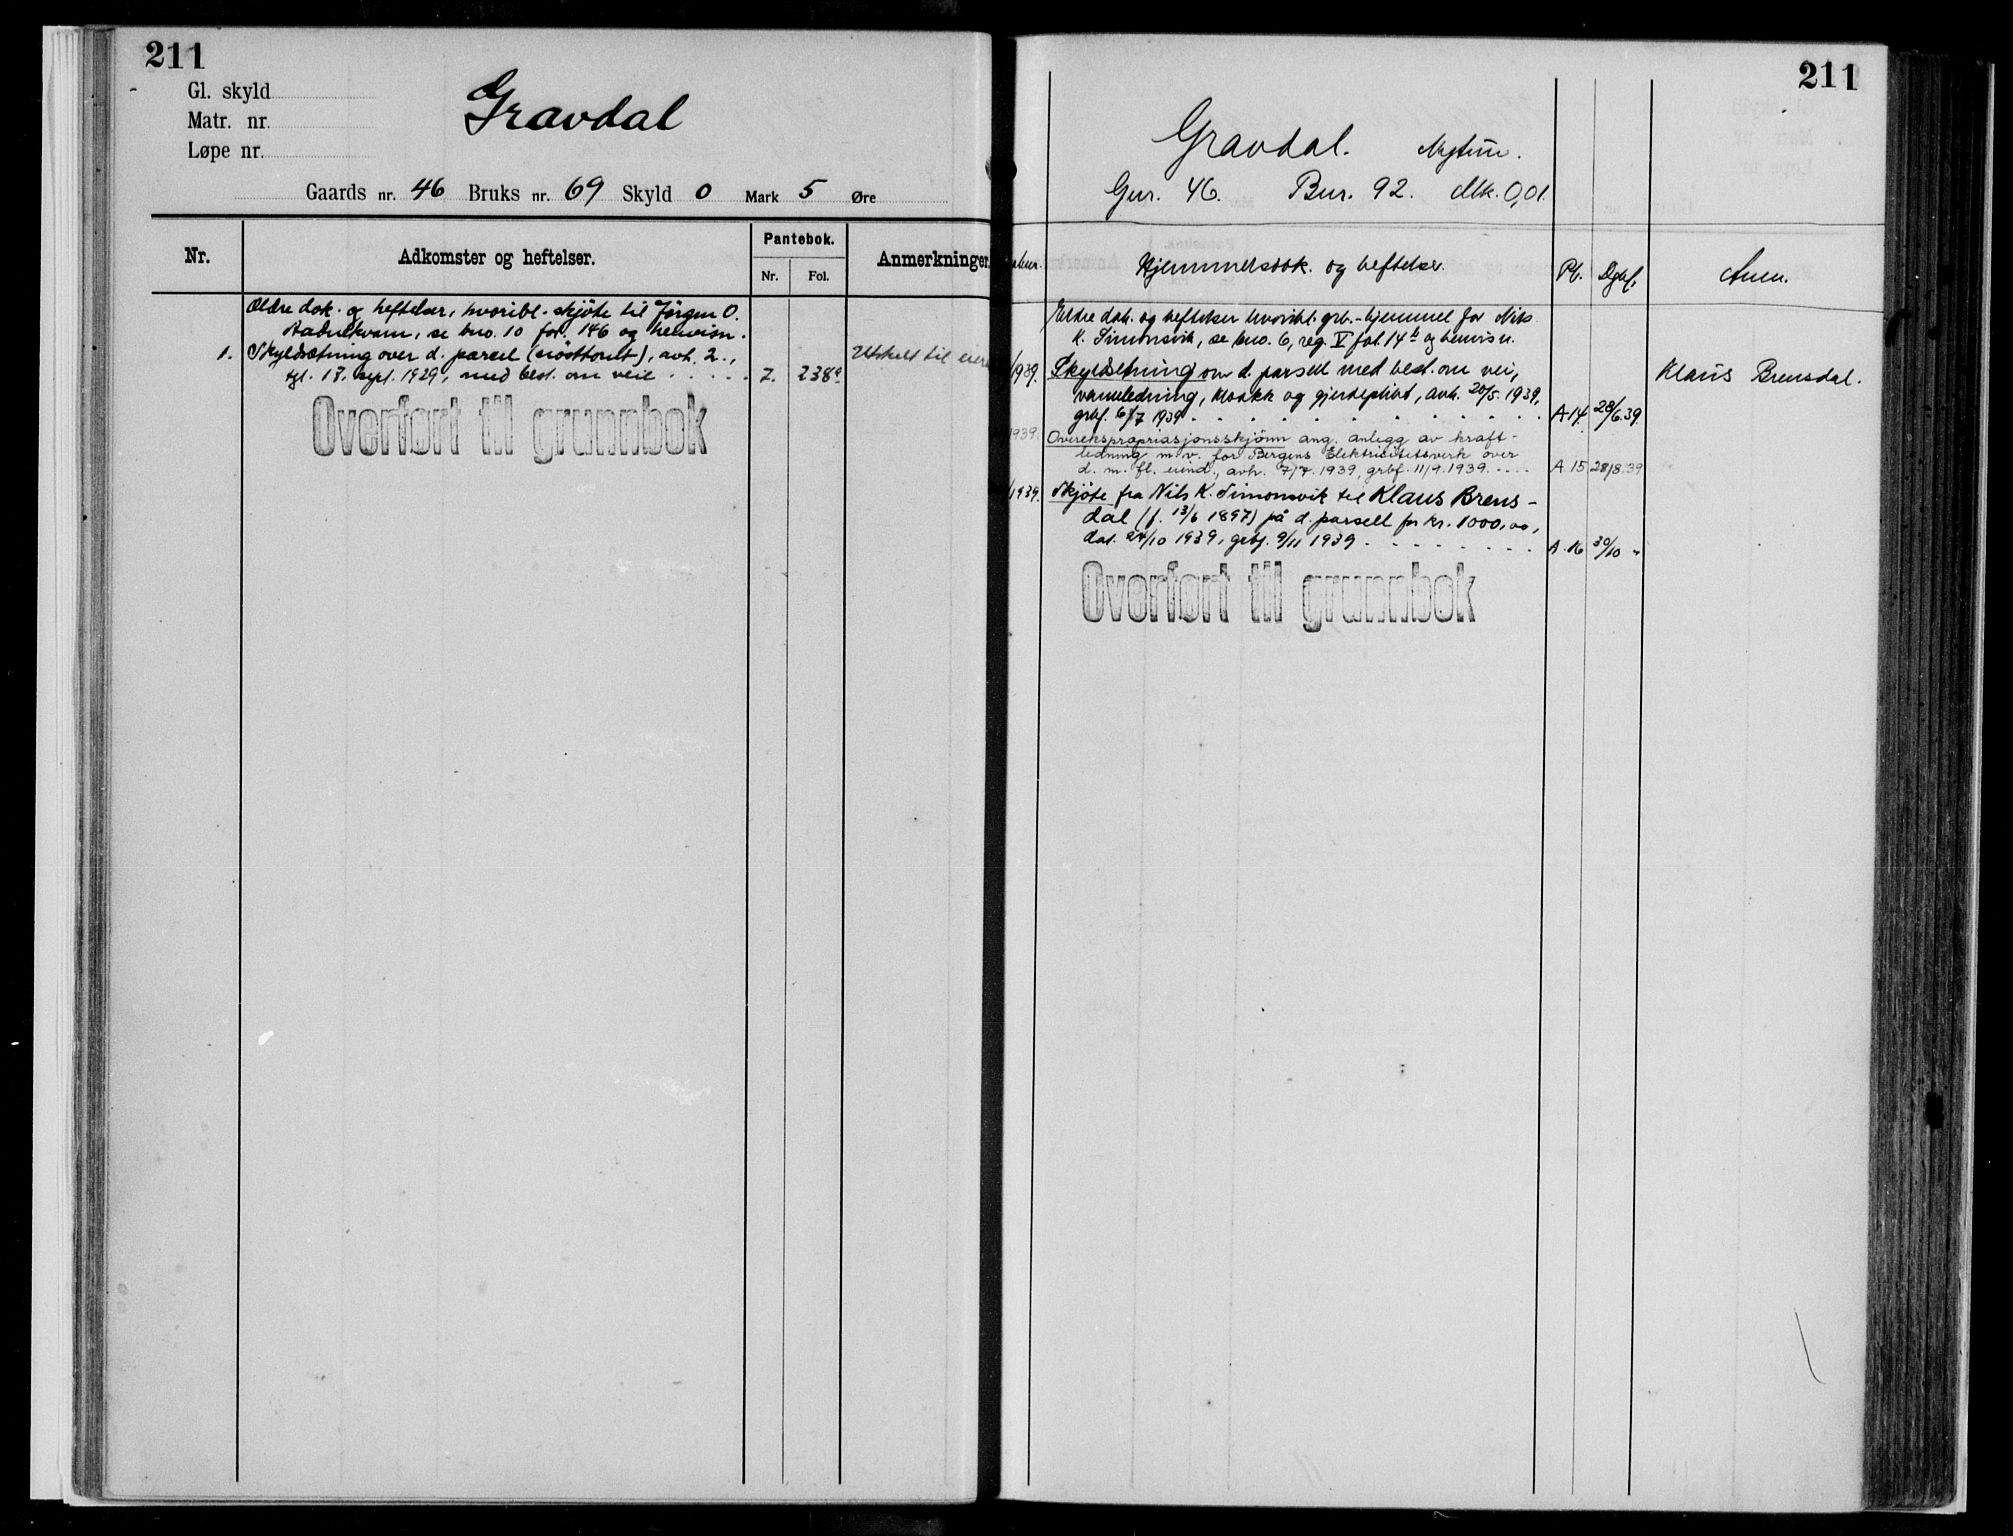 211
Gl. skyld
Matr. nr.
Løpe nr.
Gravdal
Gaards nr. 46 Bruks nr. 69 Skyld 0 Mark 5 Øre
Nr. Adkomster og heftelser. Pantebok. Anmerkninger
Nr. Fol.
Ældre dok. og heftelser, hvoribl. skjöte til Jörgen O.
se bno. 10 fol. 146 og henvisn.
1. Skyldsetning over d. parcel, avh. 2.,
tgl. 13. sept. 1929, med best. om veie . . . . . 7. 238
Utskilt til
Overført til grunnbok
211
Gravdal.
Gnr. 46. Bnr. 92. Mk. 0,01
Hjemmelsdok. og heftelser. Pb. Dgbf. Anm.
Eldre dok. og heftelser hvoribl. grb.-hjemmel for Nils
K. Simonsvik, se bno. 6, reg. V fol. 14 b og henvisn.
1939. Skyldsetning over d. parsell med best. om vei,
vannledning, kloakk og gjerdeplikt, avh. 20/5 1939,
grbf. 6/7 1939 . . . . . . . . A.14. 28/6.39.
Klaus Brensdal.
1939. Overekspropriasjonsskjönn ang. anlegg av kraft-
ledning m.v. for Bergens Elektricitetsverk over
d. m. fl. eiend., avh. 7/7.1939, grbf. 11/9.1939. . . . . A.15 28/8.39
1939. Skjöte fra Nils K. Simonsvik til Klaus Brens-
dal (f. 13/6 1897) på d. parsell for kr. 1000,00,
dat. 24/10 1939, grbf. 9/11 1939 . . . . . . . . A.16 30/10 "
Overført til grunnbok